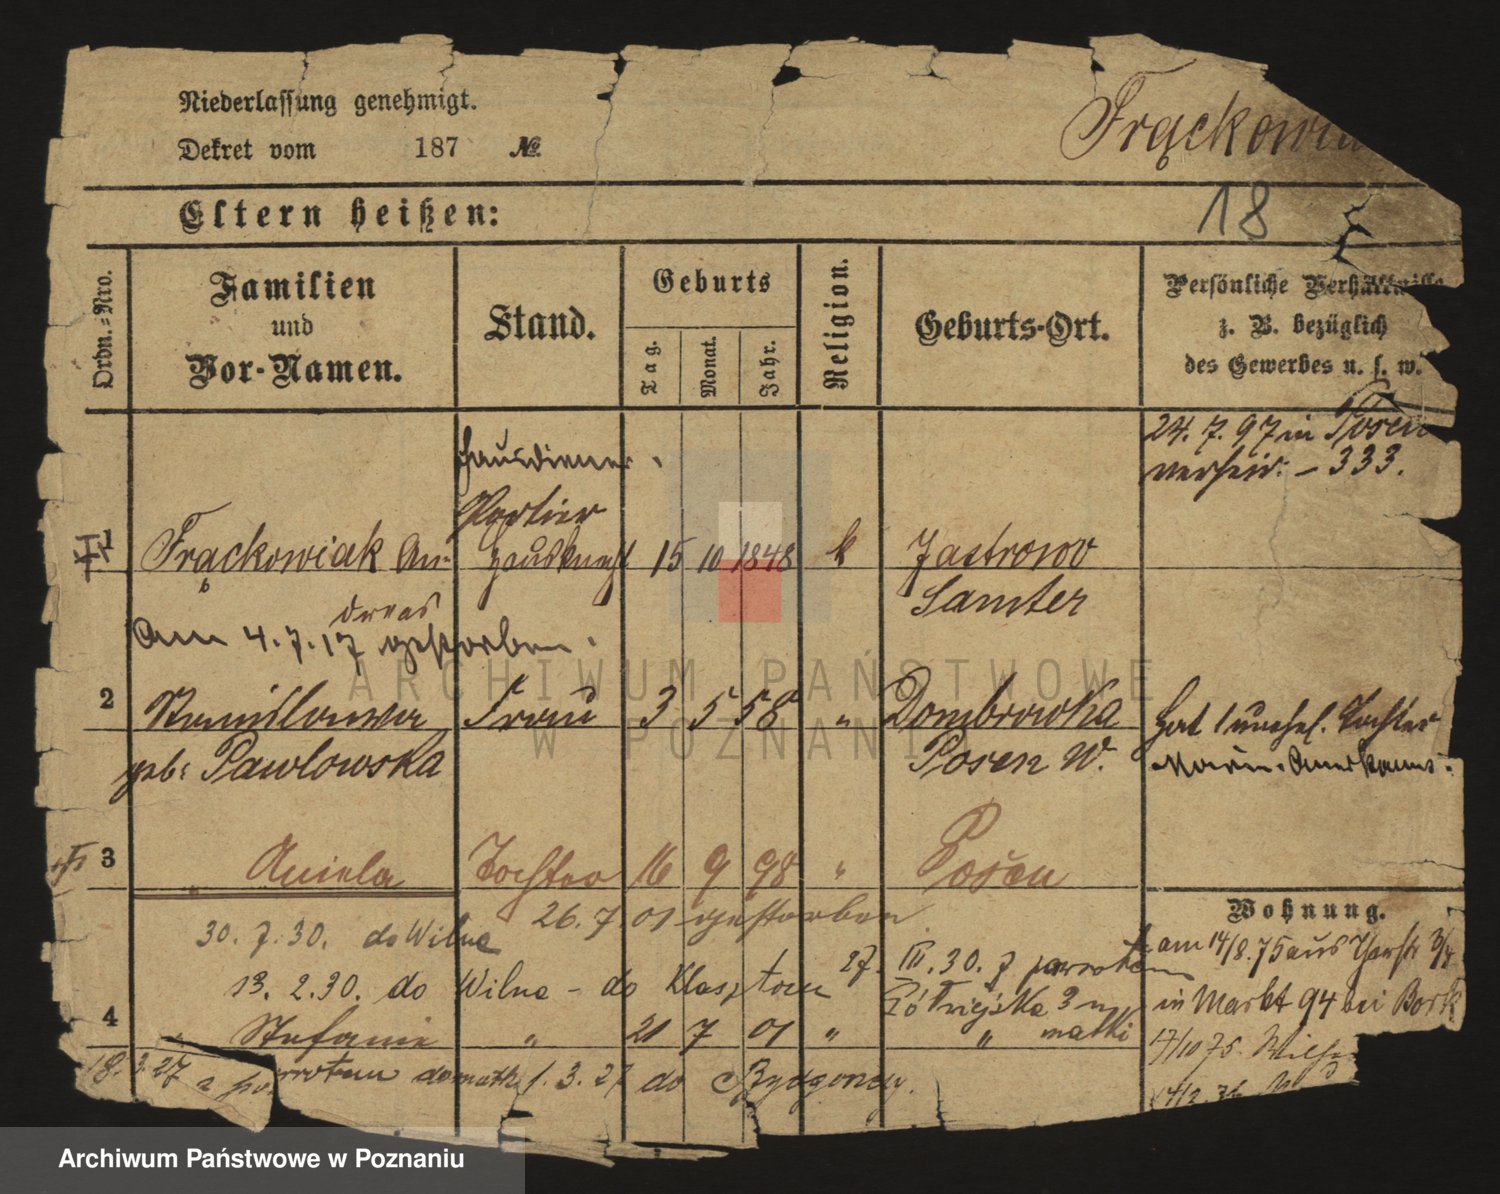 Niederlassung genehmigt.
Dekret vom 187 No.
Frąckowia
18
Eltern heißen:
Ordn.-Nro.
Familien und Vor-Namen.
Stand.
Geburts
Tag.
Monat.
Jahr.
Religion.
Geburts-Ort.
Persönliche Verhältnisse
z. B. bezüglich
des Gewerbes u. s. w.
24. 7. 97 in Posen
verheir. – 333.
Hausdiener.
Portier
1 Frąckowiak An- Hausknecht 15 10 1848 k Jastrowo
dreas
Samter
Am 4. 7. 17 gestorben.
2 Stanislawa Frau 3 5 58 " Dombrowka
geb: Pawlowska
Posen W.
Hat 1 unehel. Tochter
3 " Aniela Tochter 16 9 98 " Posen
26. 7. 01 gestorben
Wohnung.
30. 7. 30. do Wilna
am 14/8. 75 aus
13. 2. 30. do Wilna – do Klasztoru 27. III. 30. z powrotem
in Markt 94 bei Bork
Półwiejska 3 m
matki
4 " Stefanie " 21 7 01 " "
17/10 75.
18. 3. 27 z powrotem do matki 1. 3. 27 do Bydgoszczy.
ARCHIWUM PAŃSTWOWE
W POZNANIU
Archiwum Państwowe w Poznaniu